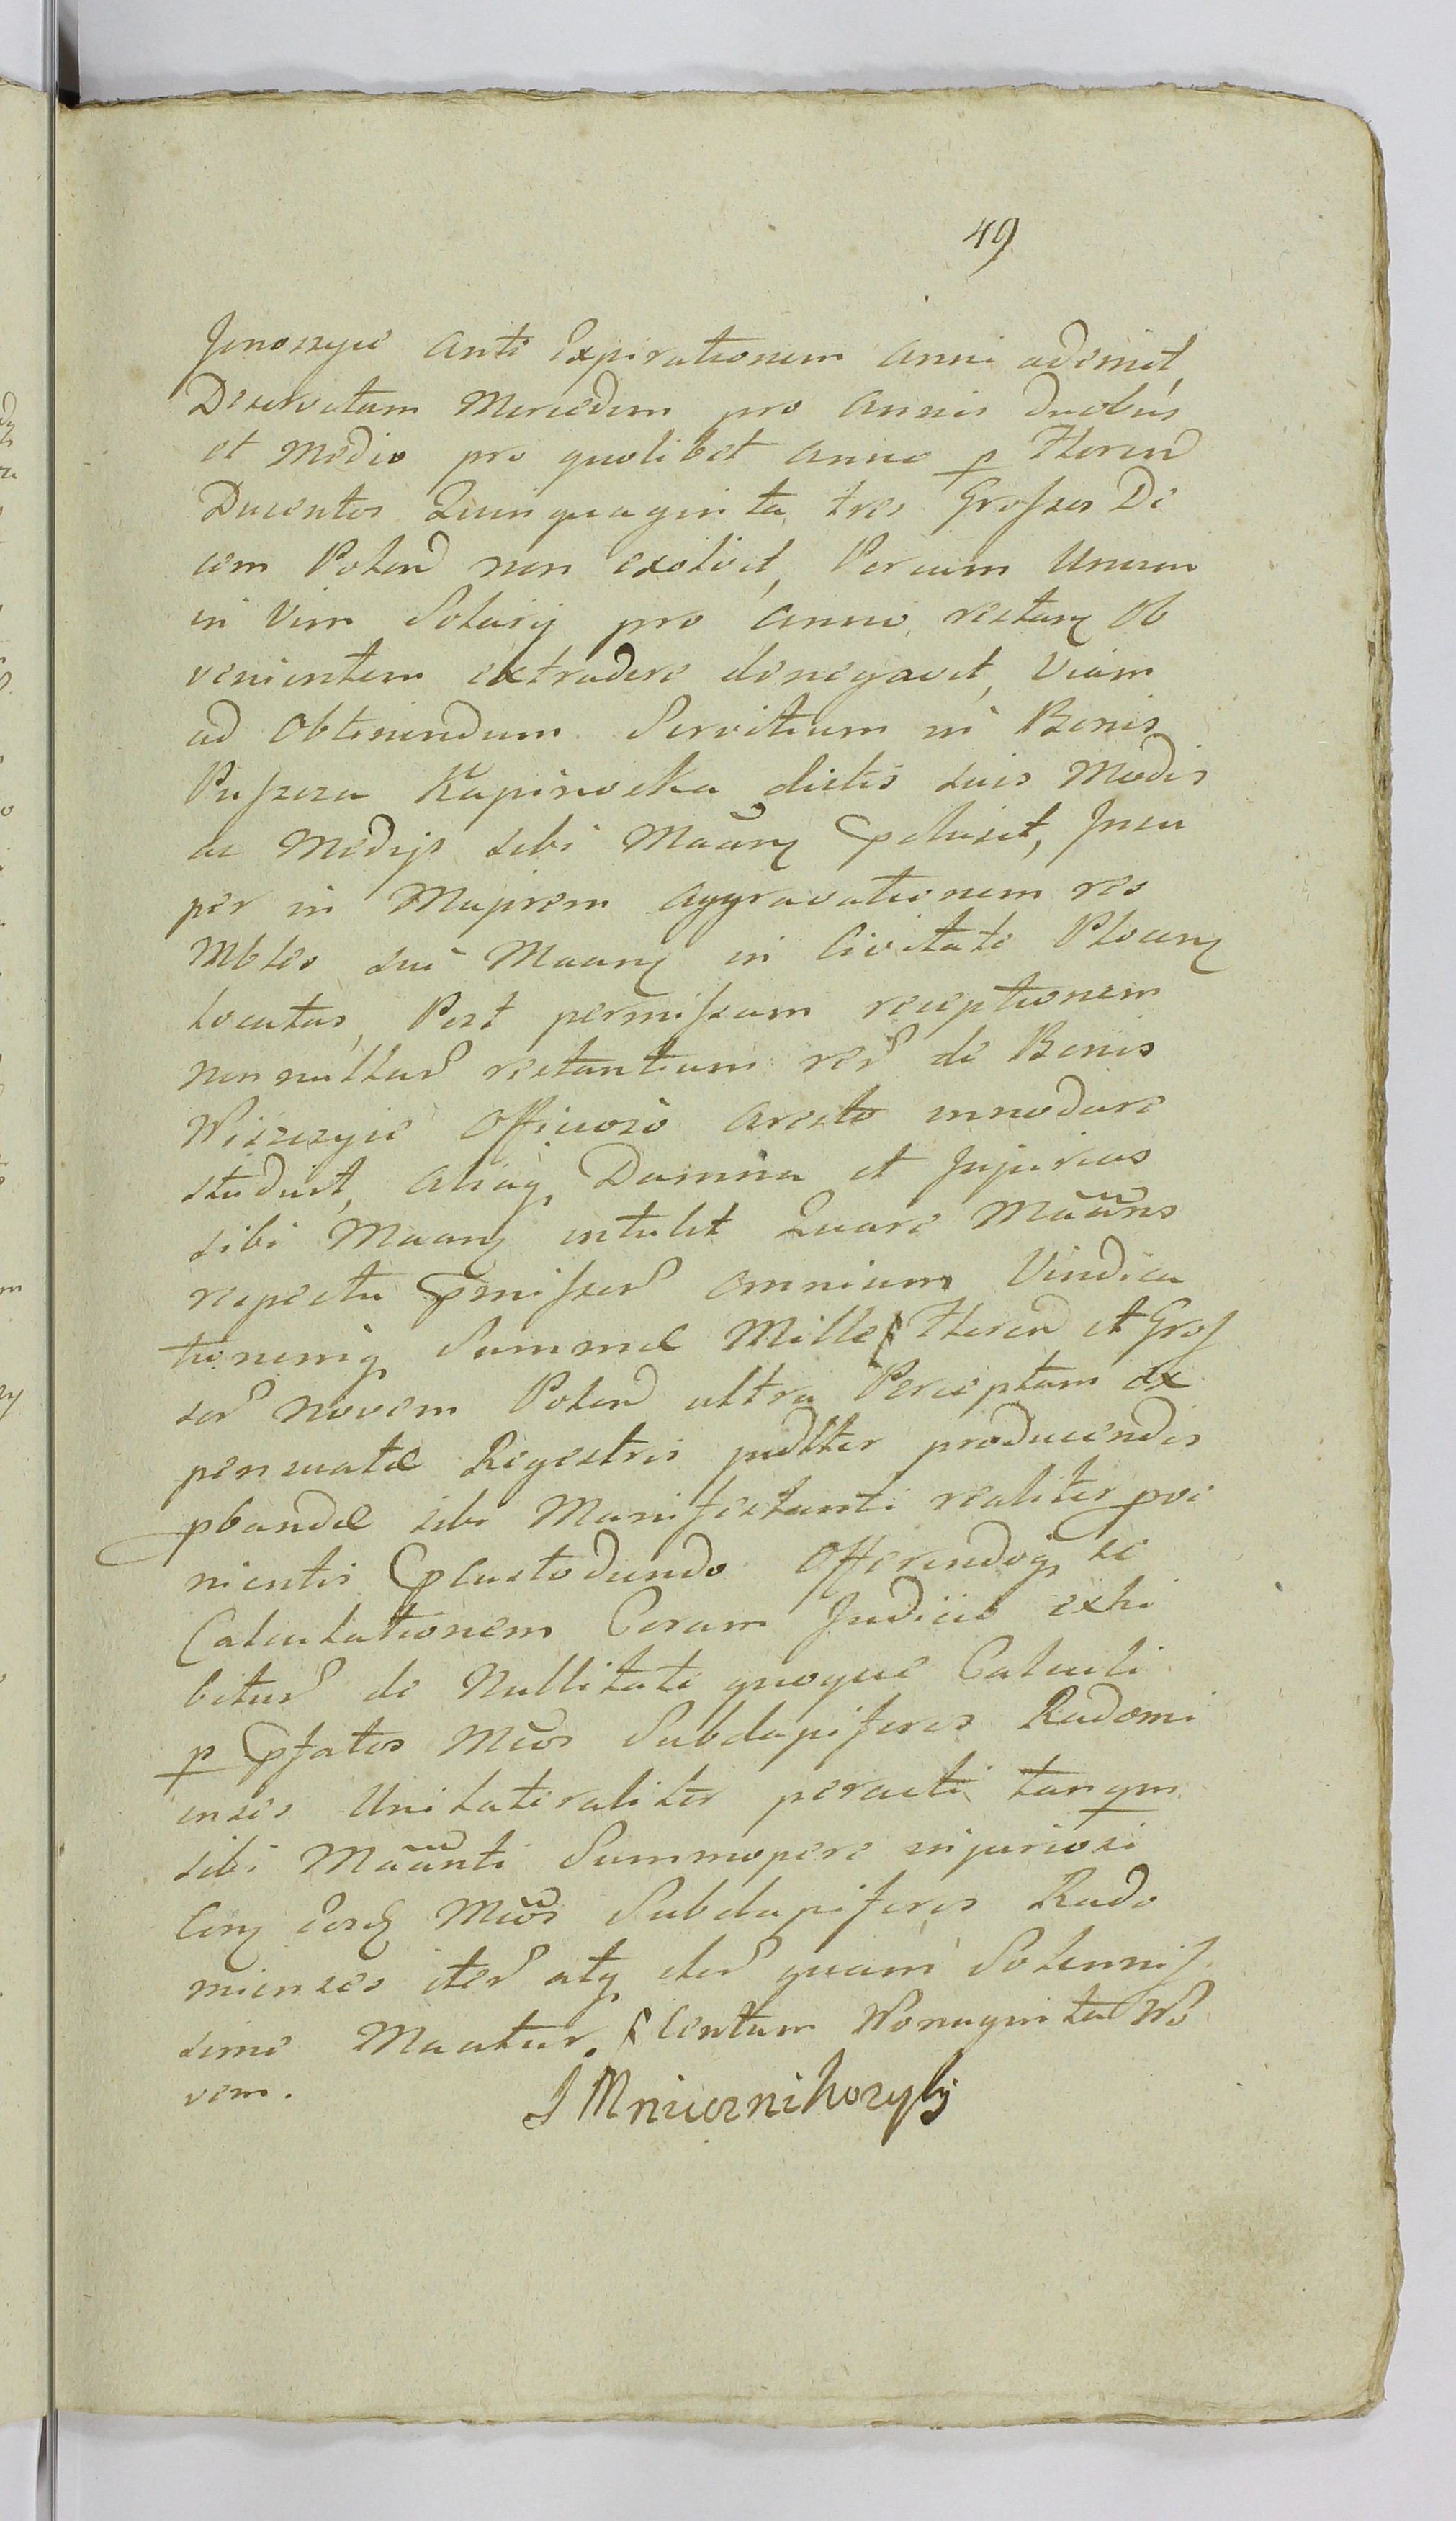 49
Jenoszyce ante Expirationem anni ademit,
Deservitam Mercedem pro annis duobus
et Medio pro quolibet anno p Floren
Ducentos Quinquaginta tres Grossos De
cem Polon non exolvit, Porcum Unum
in Vim Solarij pro anno, restan Ob
venientem extradere denegavit, Viam
ad Obtinendum Servitium in Bonis
Puszcza Kapinoska dictis suis Modis
ac Medijs sibi Maan Cpclusit, Insu
per in Majorem aggravationem res
Mbles sui Maan in Civitate Plocen
locatas, Post permissam receptionem
non nullar restantium rer de Bonis
Wiszczyce Officioso Aresto innodare
studuit, aliaq Damna et Injurias
sibi Maan intulit Quare Maans
respectu Pmissor omnium Vindica
tionemq Summæ Mille Floren et Gros
sor Novem Polon ultra Perceptam ex
pensatæ Regestris judltter producendis
pbandæ sibi Manifestanti realiter prove
nientis Cpcustodiendo Offerendoq se
Calculationem Coram Judicio exhi
bitur de Nullitate quoque Calculi
p Pfatos Mcos Subdapiferos Radomi
enses Unilateraliter peracti tanqm
sibi Maanti Summopere injuriosi
Con eosd Mcos Subdapiferos Rado
mienses iter atq iter quam Solennis
sime Maatur. Centum Nonaginta No
vem.